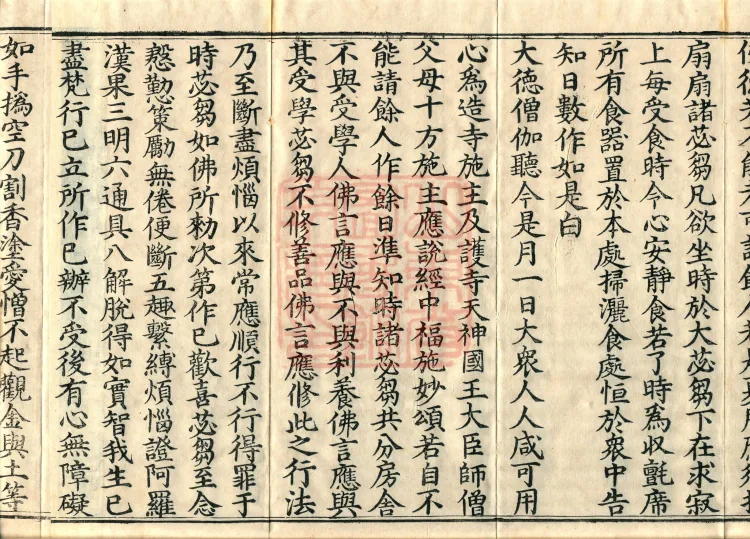 扇扇諸苾芻凡欲坐時於大苾芻下在求寂
上每受食時令心安靜食若了時為収氈席
所有食器置於本處掃灑食處恒於衆中告
知日數作如是白
大德僧伽聽今是月一日大衆人人咸可用
心為造寺施主及護寺天神國王大臣師僧
父母十方施主應說經中福施妙頌若自不
能請餘人作餘日準知時諸苾芻共分房舍
不與受學人佛言應與不與利養佛言應與
其受學苾芻不修善品佛言應修此之行法
乃至斷盡煩惱以來常應順行不行得罪于
時苾芻如佛所勑次第作已歡喜苾芻至念
慇懃策勵無倦便斷五趣繫縛煩惱證阿羅
漢果三明六通具八解脫得如實智我生已
盡梵行已立所作已辦不受後有心無障礙
如手撝空刀割香塗愛憎不起觀金與土等